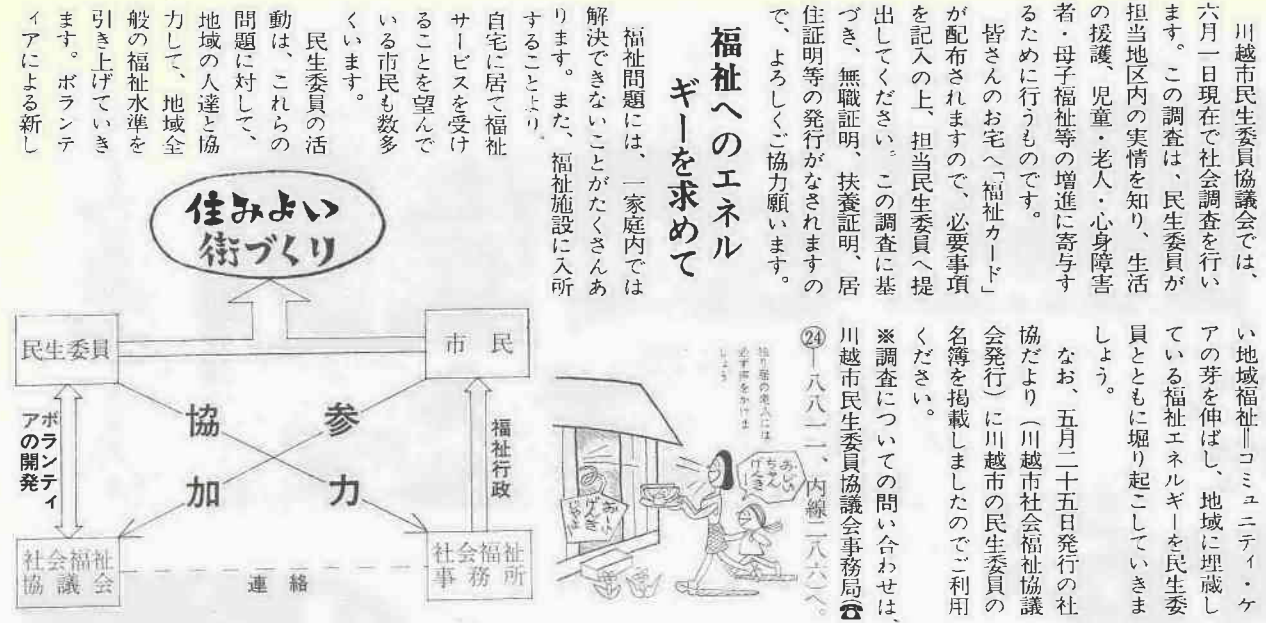 川越市民生委員協議会では、
六月一日現在で社会調査を行い
ます。この調査は、民生委員が
担当地区内の実情を知り、生活
の援護、児童・老人・心身障害
者・母子福祉等の増進に寄与す
るために行うものです。
皆さんのお宅へ「福祉カード」
が配布されますので、必要事項
を記入の上、担当民生委員へ提
出してください。この調査に基
づき、無職証明、扶養証明、居
住証明等の発行がなされますの
で、よろしくご協力願います。
福祉へのエネル
ギーを求めて
福祉問題には、一家庭内では
解決できないことがたくさんあ
ります。また、福祉施設に入所
することより、
自宅に居て福祉
サービスを受け
ることを望んで
いる市民も数多
くいます。
民生委員の活
動は、これらの
問題に対して、
地域の人達と協
力して、地域全
般の福祉水準を
引き上げていき
ます。ボランテ
ィアによる新し
い地域福祉=コミュニティ・ケ
アの芽を伸ばし、地域に埋蔵し
ている福祉エネルギーを民生委
員とともに堀り起こしていきま
しょう。
なお、五月二十五日発行の社
協だより(川越市社会福祉協議
会発行)に川越市の民生委員の
名簿を掲載しましたのでご利用
ください。
※調査についての問い合わせは、
川越市民生委員協議会事務局(☎
㉔一八八一一、内線二八六へ。
独り居の老人には
必ず声をかけま
しょう
おじい
ちゃん
げんきー
おーい
げんき
じゃよ
住みよい
街づくり
民生委員
市民
協
参
加
力
ボランティ
アの開発
福祉行政
社会福祉
協議会
連絡
社会福祉
事務所